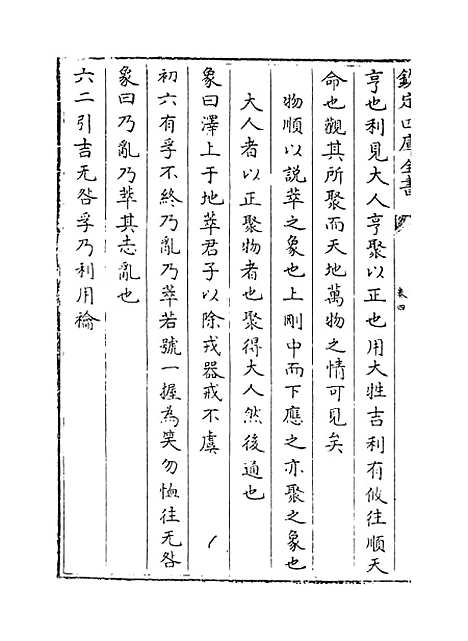 欽定四庫全書
卷四
亨也利見大人亨聚以正也用大牲吉利有攸往順天
命也觀其所聚而天地萬物之情可見矣
物順以說萃之象也上剛中而下應之亦聚之象也
大人者以正聚物者也聚得大人然後通也
象曰澤上于地萃君子以除戎器戒不虞
初六有孚不終乃亂乃萃若號一握為笑勿恤往无咎
象曰乃亂乃萃其志亂也
六二引吉无咎孚乃利用禴